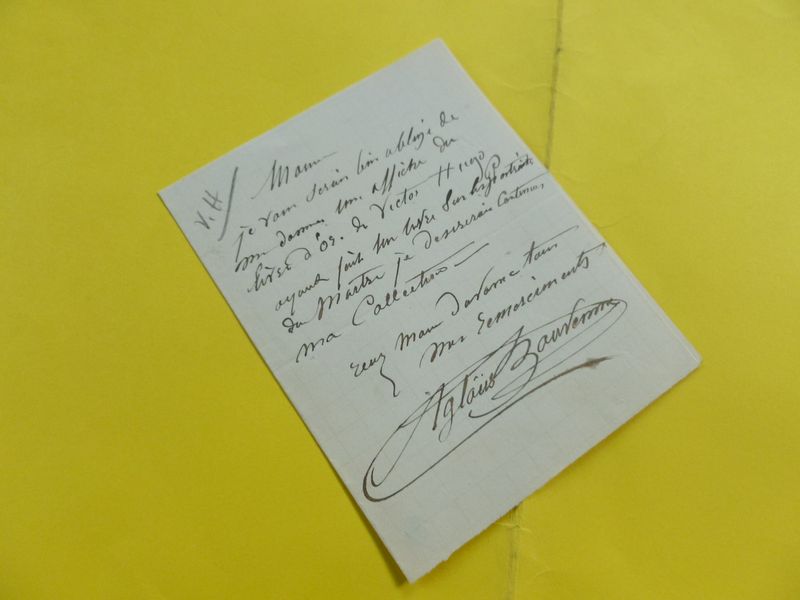 V. H
Mons
je vous serais bien obligé de
me donner une affiche du
livre d'Or. de Victor Hugo
ayant fait un livre sur les Portraits
du Maitre je desirerais Continuer
ma Collection
recez Mons d'avance tous
mes remerciments
Aglaüs Bouvenne